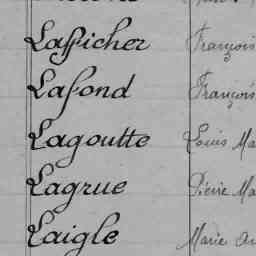 Lafficher François
Lafond François
Lagoutte Louis Ma
Lagrue Pierre Ma
Laigle Marie